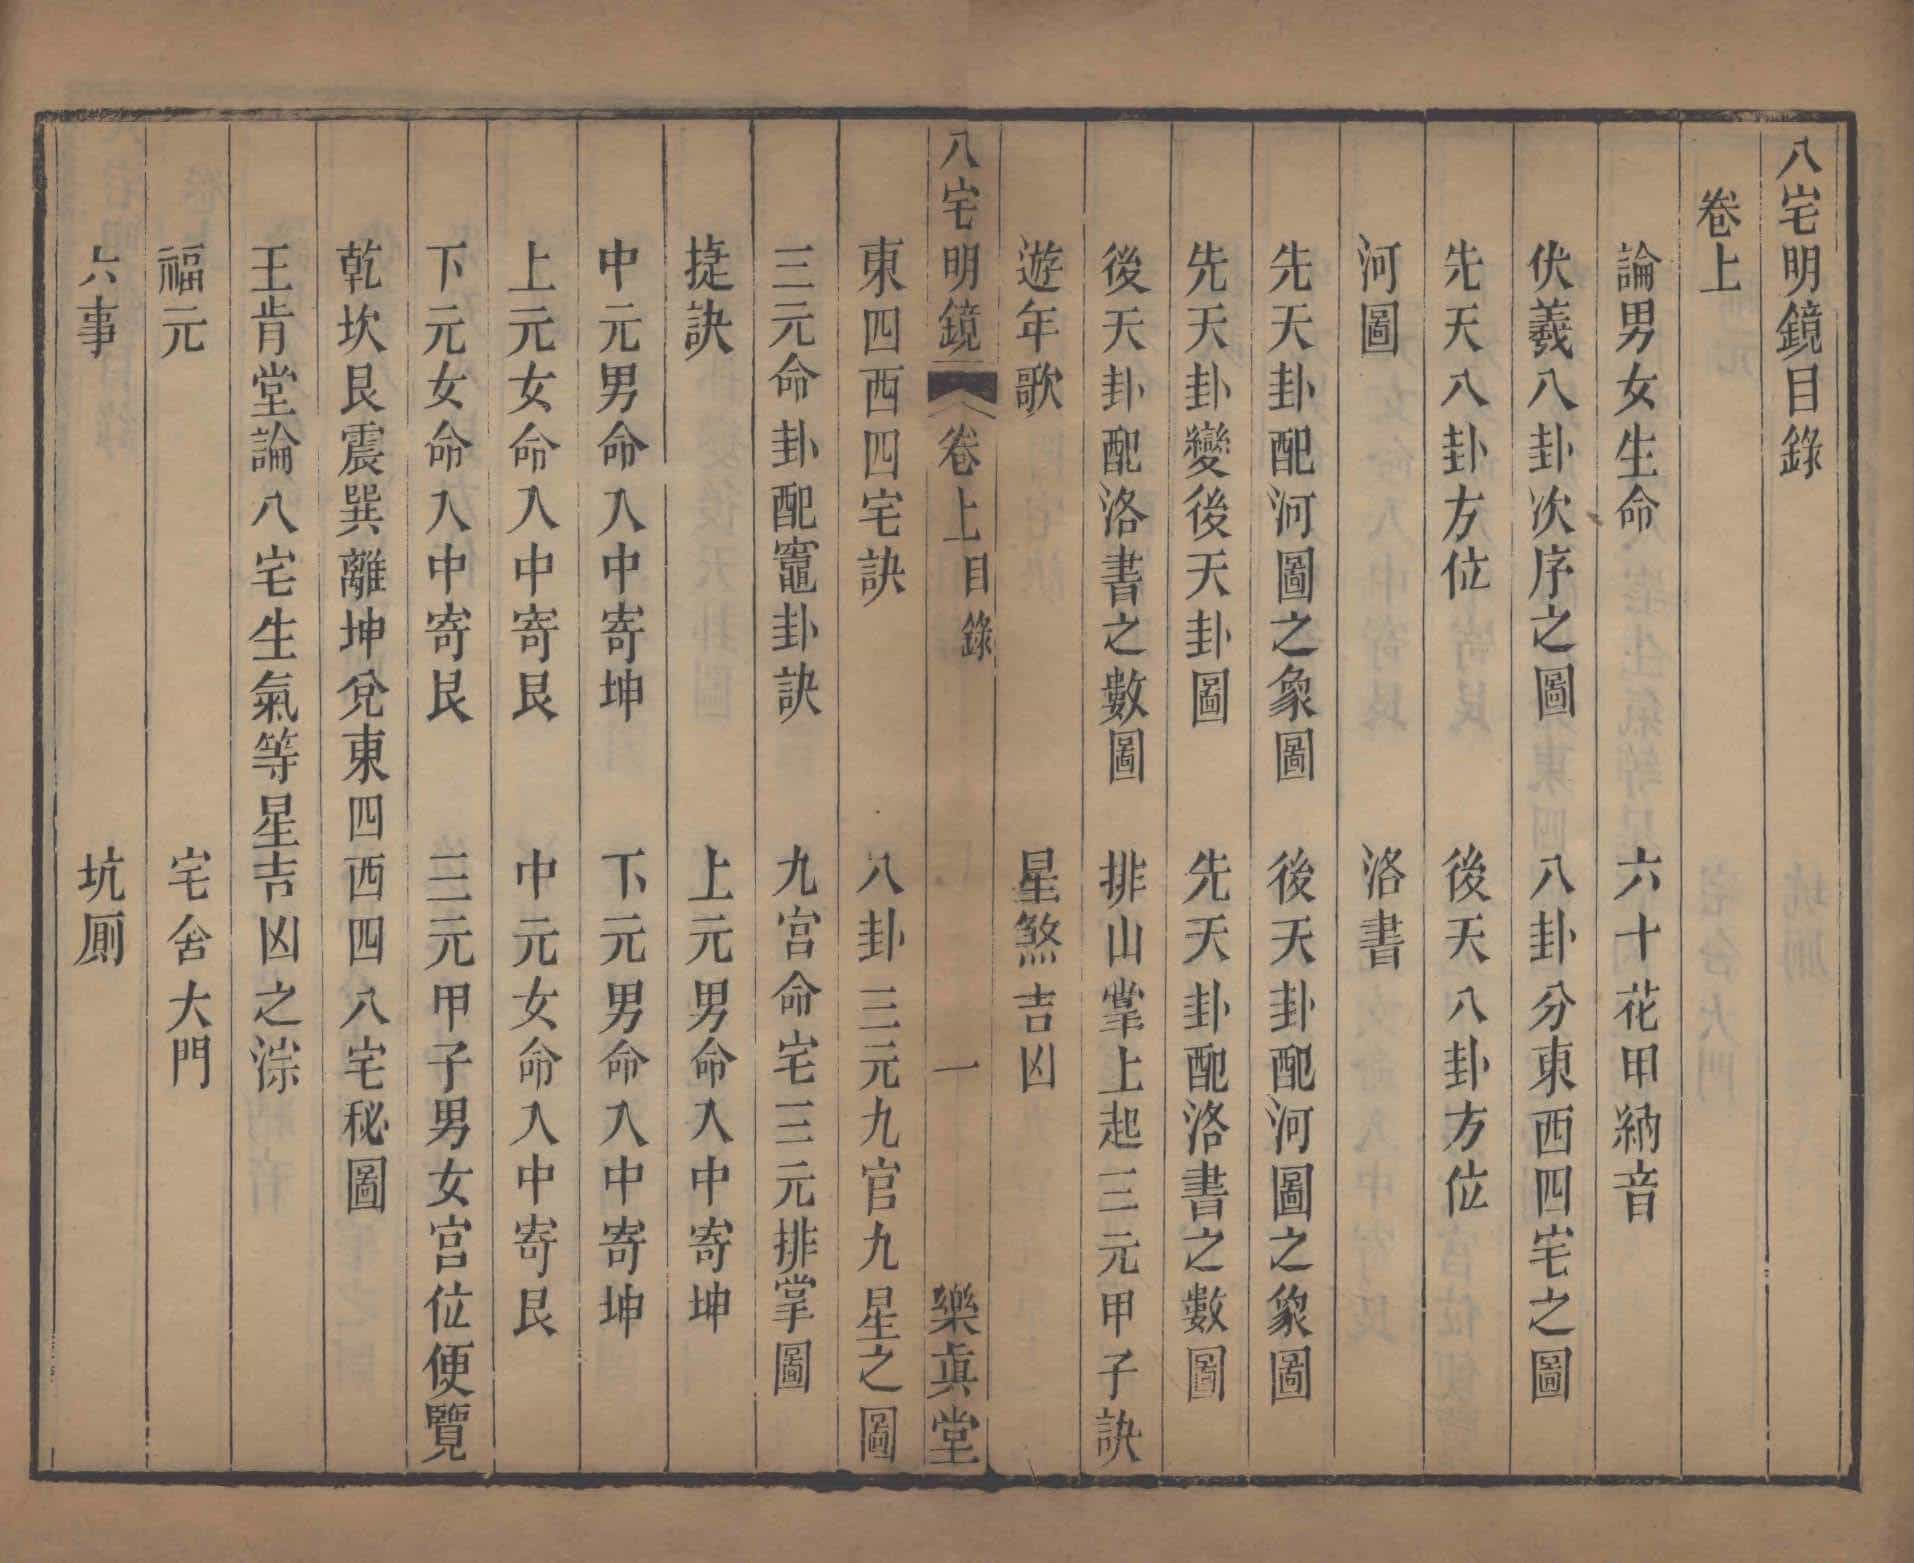 八宅明鏡目錄
卷上
論男女生命　六十花甲納音
伏羲八卦次序之圖　八卦分東西四宅之圖
先天八卦方位　後天八卦方位
河圖　洛書
先天卦配河圖之象圖　後天卦配河圖之象圖
先天卦變後天卦圖　先天卦配洛書之數圖
後天卦配洛書之數圖　排山掌上起三元甲子訣
遊年歌　星煞吉凶
八宅明鏡　卷上目錄　一　樂真堂
東四西四宅訣　八卦三元九官九星之圖
三元命卦配竈卦訣　九宮命宅三元排掌圖
捷訣　上元男命入中寄坤
中元男命入中寄坤　下元男命入中寄坤
上元女命入中寄艮　中元女命入中寄艮
下元女命入中寄艮　三元甲子男女宮位便覽
乾坎艮震巽離坤兌東四西四八宅秘圖
王肯堂論八宅生氣等星吉凶之淙
福元　宅舍大門
六事　坑厠